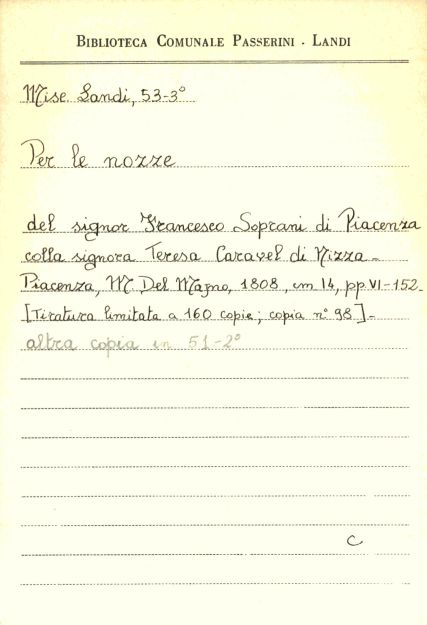 BIBLIOTECA COMUNALE PASSERINI - LANDI
Misc. Landi, 53-3°
Per le nozze
del signor Francesco Soprani di Piacenza
colla signora Teresa Caravel di Nizza -
Piacenza, M. Del Majno, 1808, in 14, pp. VI-152.
[Tiratura limitata a 160 copie; copia n° 98] -
altra copia in 51-2°
C